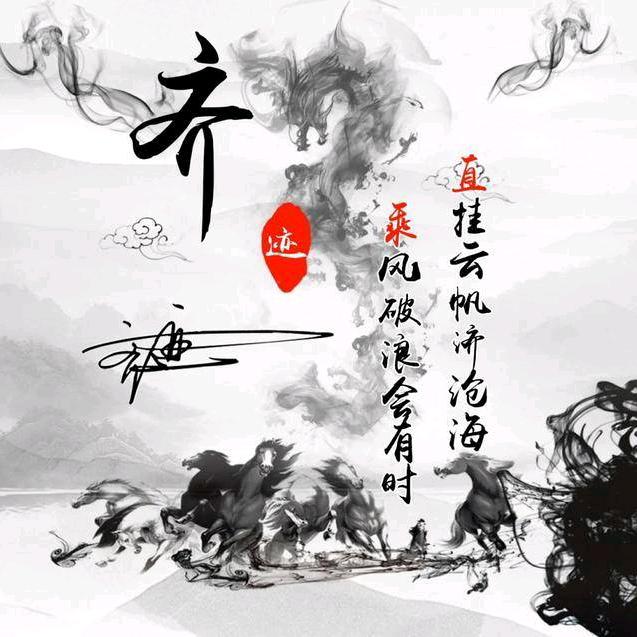 齐
迹
直挂云帆济沧海
乘风破浪会有时